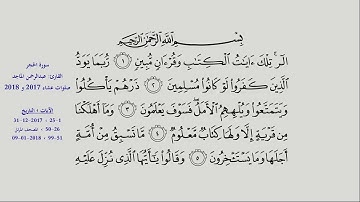 بِسْمِ اللَّهِ الرَّحْمَٰنِ الرَّحِيمِ
الٓر ۚ تِلْكَ ءَايَٰتُ الْكِتَٰبِ وَقُرْءَانٍ مُّبِينٍ ١ رُّبَمَا يَوَدُّ
الَّذِينَ كَفَرُوا لَوْ كَانُوا مُسْلِمِينَ ٢ ذَرْهُمْ يَأْكُلُوا
وَيَتَمَتَّعُوا وَيُلْهِهِمُ الْأَمَلُ فَسَوْفَ يَعْلَمُونَ ٣ وَمَا أَهْلَكْنَا
مِن قَرْيَةٍ إِلَّا وَلَهَا كِتَابٌ مَّعْلُومٌ ٤ مَّا تَسْبِقُ مِنْ أُمَّةٍ
أَجَلَهَا وَمَا يَسْتَـْٔخِرُونَ ٥ وَقَالُوا يَٰأَيُّهَا الَّذِي نُزِّلَ عَلَيْهِ
سورة الحجر
القارئ: عبدالرحمن الماجد
صلوات عشاء 2017 و 2018
الآيات : التاريخ
1-25 : 31-12-2017
26-50 : المصحف المرتل
51-99 : 09-01-2018